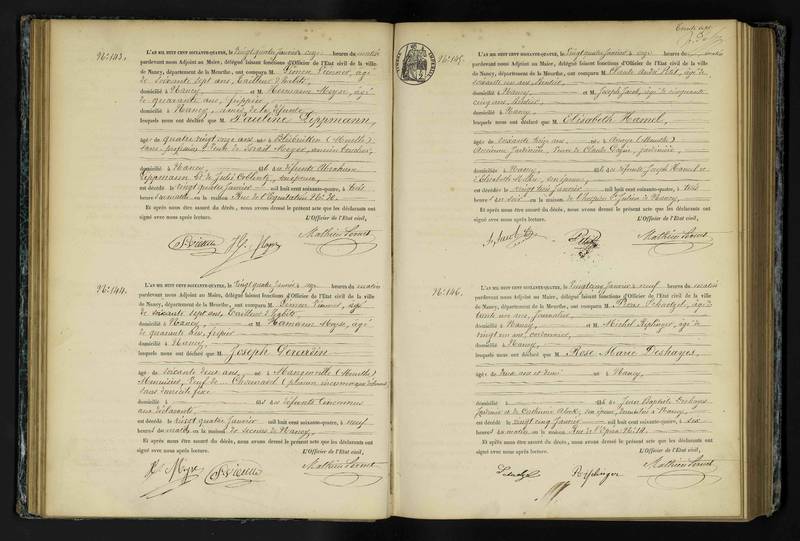 No. 143.
L'AN MIL HUIT CENT SOIXANTE-QUATRE, le vingt quatre Janvier à onze heures du matin
pardevant nous Adjoint au Maire, délégué faisant fonctions d'Officier de l'État civil de la ville
de Nancy, département de la Meurthe, ont comparu M. Simon Vienner, âgé
de soixante sept ans, tailleur d'habits,
domicilié à Nancy, et M. Hermann Meyer, âgé
de quarante ans, fripier
domicilié à Nancy, amis de la défunte
lesquels nous ont déclaré que M. Pauline Lippmann,
âgée de quatre vingt onze ans née à (Moselle)
sans profession, Veuve de Israël Meyer, ancien boucher,
domiciliée à Nancy fille de défunts Abraham
Lippmann et de Julie Coblentz, son épouse,
est décédée le vingt quatre Janvier mil huit cent soixante-quatre, à trois
heures du matin en la maison Rue de l'Equitation No. 20.
Et après nous être assuré du décès, nous avons dressé le présent acte que les déclarants ont
signé avec nous après lecture. L'Officier de l'État civil,
No. 144.
L'AN MIL HUIT CENT SOIXANTE-QUATRE, le vingt quatre Janvier à onze heures du matin
pardevant nous Adjoint au Maire, délégué faisant fonctions d'Officier de l'État civil de la ville
de Nancy, département de la Meurthe, ont comparu M. Simon Vienner, âgé
de soixante sept ans, tailleur d'habits
domicilié à Nancy, et M. Hermann Meyer, âgé
de quarante ans, fripier
domicilié à Nancy,
lesquels nous ont déclaré que M. Joseph
âgé de soixante deux ans, né à (Meurthe)
Menuisier, Veuf de (prénom inconnu aux déclarants)
sans domicile fixe
domicilié à fils de défunts inconnus
aux déclarants
est décédé le vingt quatre Janvier mil huit cent soixante-quatre, à neuf
heures du matin en la maison de secours de Nancy.
Et après nous être assuré du décès, nous avons dressé le présent acte que les déclarants ont
signé avec nous après lecture. L'Officier de l'État civil,
No. 145.
L'AN MIL HUIT CENT SOIXANTE-QUATRE, le vingt quatre Janvier à onze heures du matin
pardevant nous Adjoint au Maire, délégué faisant fonctions d'Officier de l'État civil de la ville
de Nancy, département de la Meurthe, ont comparu M. Claude André Piat, âgé de
soixante un ans, Rentier,
domicilié à Nancy et M. Joseph Jacob, âgé de cinquante
cinq ans, Rentier
domicilié à Nancy,
lesquels nous ont déclaré que M. Elisabeth Hamel,
âgée de soixante treize ans née à (Meurthe)
ancienne jardinière, Veuve de Claude jardinier,
domiciliée à Nancy fille de défunts Joseph Hamel et
d'Elisabeth son épouse,
est décédée le vingt trois Janvier mil huit cent soixante-quatre, à trois
heures du soir en la maison de l'hospice St Julien de Nancy,
Et après nous être assuré du décès, nous avons dressé le présent acte que les déclarants ont
signé avec nous après lecture. L'Officier de l'État civil,
No. 146.
L'AN MIL HUIT CENT SOIXANTE-QUATRE, le vingt cinq Janvier à neuf heures du matin
pardevant nous Adjoint au Maire, délégué faisant fonctions d'Officier de l'État civil de la ville
de Nancy, département de la Meurthe, ont comparu M. Pierre âgé de
trente ans, Journalier
domicilié à Nancy, et M. Michel âgé de
vingt un ans, cordonnier,
domicilié à Nancy,
lesquels nous ont déclaré que M. Rose Marie Deshayes,
âgée de deux ans et demi née à Nancy,
domiciliée à fille de Jean Baptiste Deshayes
et de Catherine son épouse, domiciliés à Nancy
est décédée le vingt cinq Janvier mil huit cent soixante-quatre, à six
heures du matin en la maison Rue de No. 14.
Et après nous être assuré du décès, nous avons dressé le présent acte que les déclarants ont
signé avec nous après lecture. L'Officier de l'État civil,